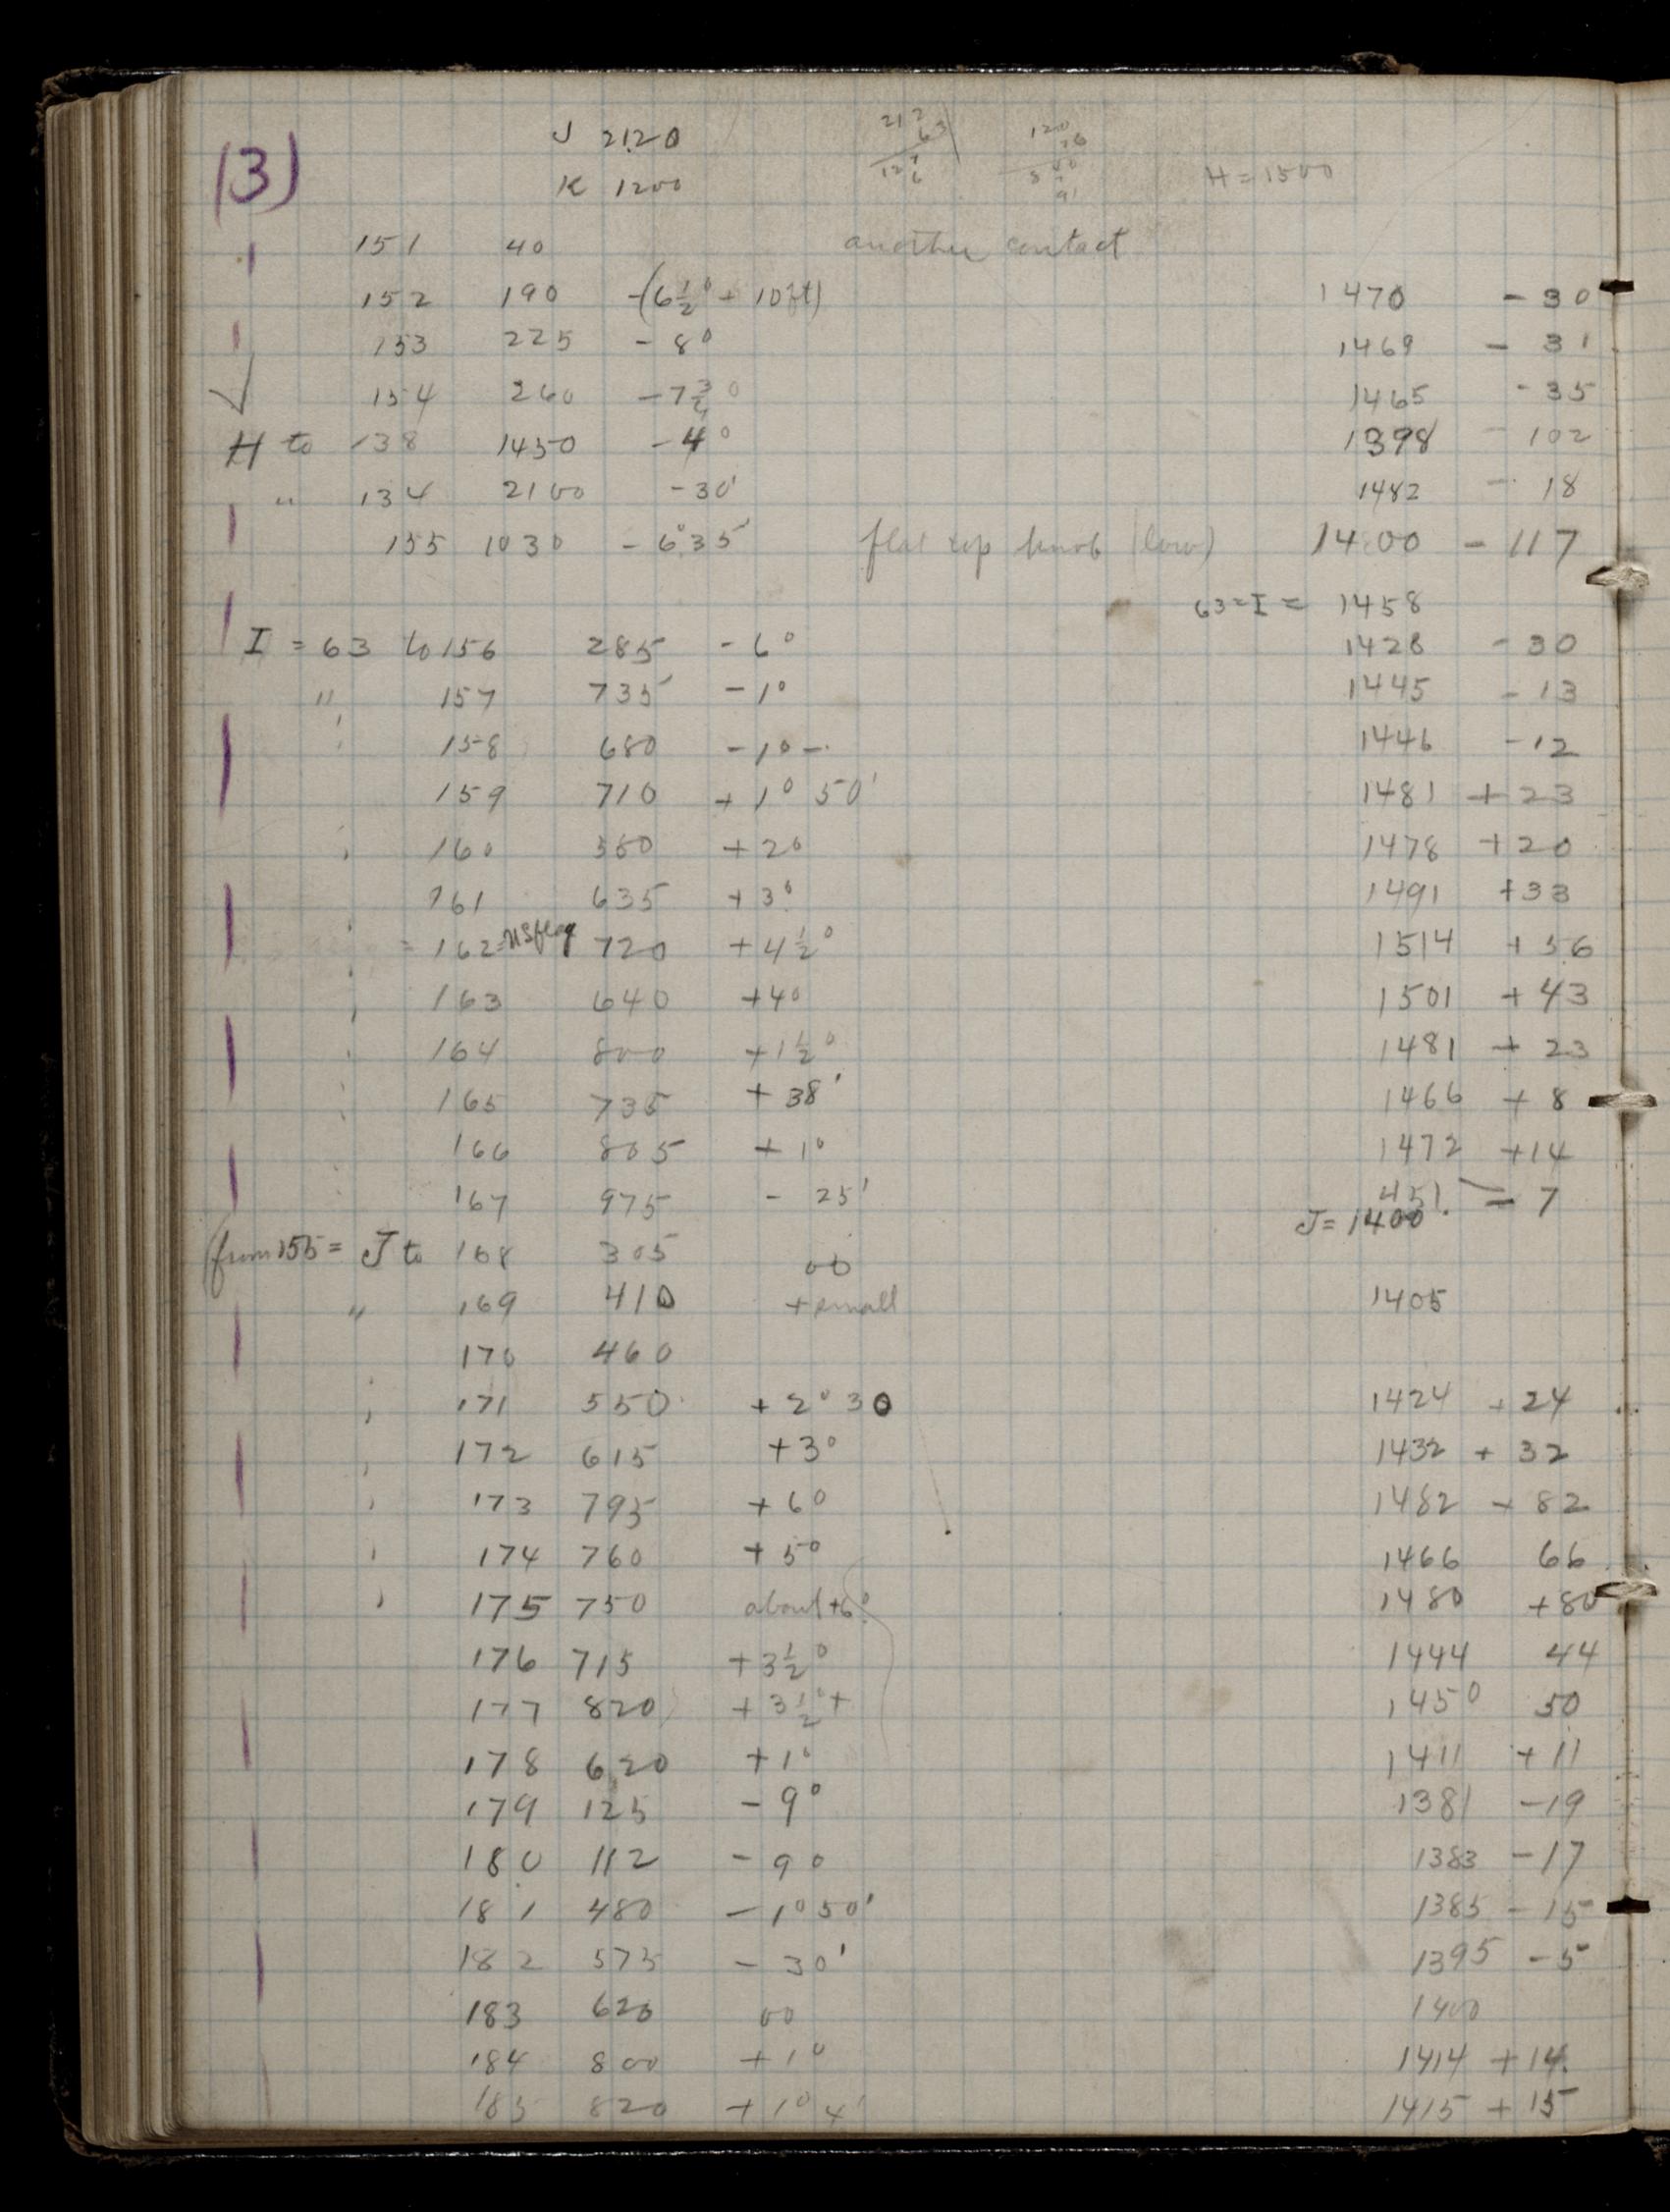 (3)
J 2120
K 1200
H = 1500
151 40 another contact
152 190 -(6½° + 10ft) 1470 - 30
153 225 - 8° 1469 - 31
154 260 - 7¾° 1465 - 35
H to 138 1450 - 4° 1398 - 102
" 134 2100 - 30' 1482 - 18
155 1030 - 6°35' flat top knob (low) 1400 - 117
63 = I = 1458
I = 63 to 156 285 - 6° 1428 - 30
" 157 735 - 1° 1445 - 13
" 158 680 - 1° - 1446 - 12
159 710 + 1° 50' 1481 + 23
" 160 580 + 2° 1478 + 20
161 635 + 3° 1491 + 33
" = 162 = US flag 720 + 4½° 1514 + 56
" 163 640 + 4° 1501 + 43
" 164 800 + 1½° 1481 + 23
" 165 735 + 38' 1466 + 8
166 805 + 1° 1472 + 14
" 167 975 - 25' 451 - 7
J = 1400
(from 155 = J to 168 305 00
" 169 410 + small 1405
170 460
" 171 550 + 2° 30 1424 + 24
" 172 615 + 3° 1432 + 32
" 173 795 + 6° 1482 + 82
" 174 760 + 5° 1466 66
" 175 750 about + 6° 1480 + 80
176 715 + 3½° 1444 44
177 820 + 3½° + 1450 50
178 620 + 1° 1411 + 11
179 125 - 9° 1381 - 19
180 112 - 9° 1383 - 17
181 480 - 1° 50' 1385 - 15
182 575 - 30' 1395 - 5
183 620 00 1400
184 800 + 1° 1414 + 14
185 820 + 1° 4' 1415 + 15